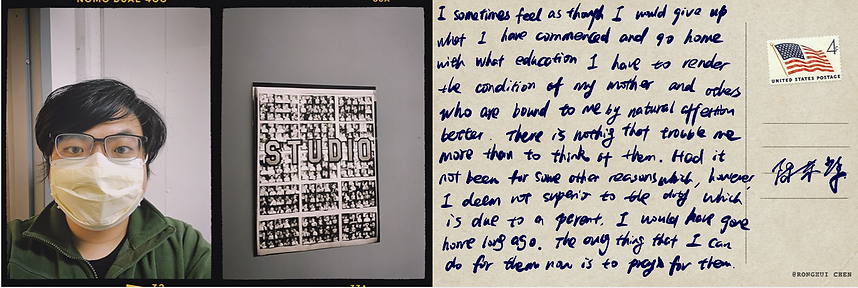 NOMO DUAL 400
33A
STUDIO
33
33A
I sometimes feel as though I would give up
what I have commenced and go home
with what education I have to render
the condition of my mother and others
who are bound to me by natural affection
better. There is nothing that trouble me
more than to think of them. Had it
not been for some other reasons which, however
I deem not superior to the duty which
is due to a parent. I would have gone
home long ago. The only thing that I can
do for them now is to pray for them.
4¢
UNITED STATES POSTAGE
@RONGZUI CHEN